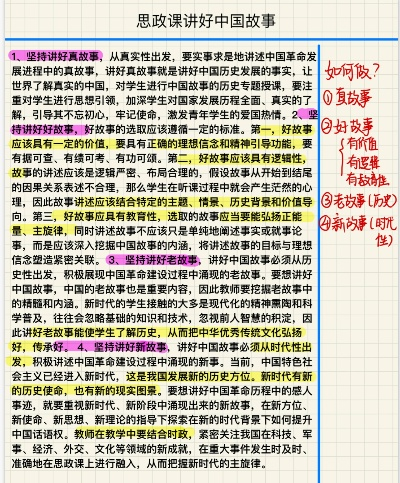 思政课讲好中国故事
1、坚持讲好真故事，从真实性出发，要实事求是地讲述中国革命发
展进程中的真故事，讲好真故事就是讲好中国历史发展的事实，让
世界了解真实的中国，对学生进行中国故事的历史专题授课，要注
重对学生进行思想引领，加深学生对国家发展历程全面、真实的了
解，引导其不忘初心，牢记使命，激发青年学生的爱国热情。2、坚
持讲好好故事，好故事的选取应该遵循一定的标准。第一，好故事
应该具有一定的价值，要具有正确的理想信念和精神引导功能，要
有据可查、有绩可考、有功可颂。第二，好故事应该具有逻辑性，
故事的讲述应该是逻辑严密、布局合理的，假设故事从开始到结尾
的因果关系表述不合理，那么学生在听课过程中就会产生茫然的心
理，因此故事讲述应该结合特定的主题、情景、历史背景和价值导
向。第三，好故事应具有教育性，选取的故事应当要能弘扬正能
量、主旋律，同时讲述故事不应该只是单纯地阐述事实或就事论
事，而是应该深入挖掘中国故事的内涵，将讲述故事的目标与理想
信念塑造紧密关联。3、坚持讲好老故事，讲好中国故事必须从历
史性出发，积极展现中国革命建设过程中涌现的老故事。要想讲好
中国故事，中国的老故事也是重要内容，因此教师要挖掘老故事中
的精髓和内涵。新时代的学生接触的大多是现代化的精神熏陶和科
学普及，往往会忽略基础的知识和技术，忽视前人智慧的积淀，因
此讲好老故事能使学生了解历史，从而把中华优秀传统文化弘扬
好，传承好。4、坚持讲好新故事，讲好中国故事必须从时代性出
发，积极讲述中国革命建设过程中涌现的新事。当前，中国特色社
会主义已经进入新时代，这是我国发展新的历史方位。新时代有新
的历史使命，也有新的现实图景。要想讲好中国革命历程中的感人
事迹，就要重视新时代、新阶段中涌现出来的新故事，在新方位、
新使命、新思想、新理论的指导下探索在新的时代背景下如何提升
中国话语权。教师在教学中要结合时政，紧密关注我国在科技、军
事、经济、外交、文化等领域的新成就，在重大事件发生时及时、
准确地在思政课上进行融入，从而把握新时代的主旋律。
如何做？
①真故事
②好故事
有价值
有逻辑
有教育性
③老故事(历史)
④新故事(时代
性)